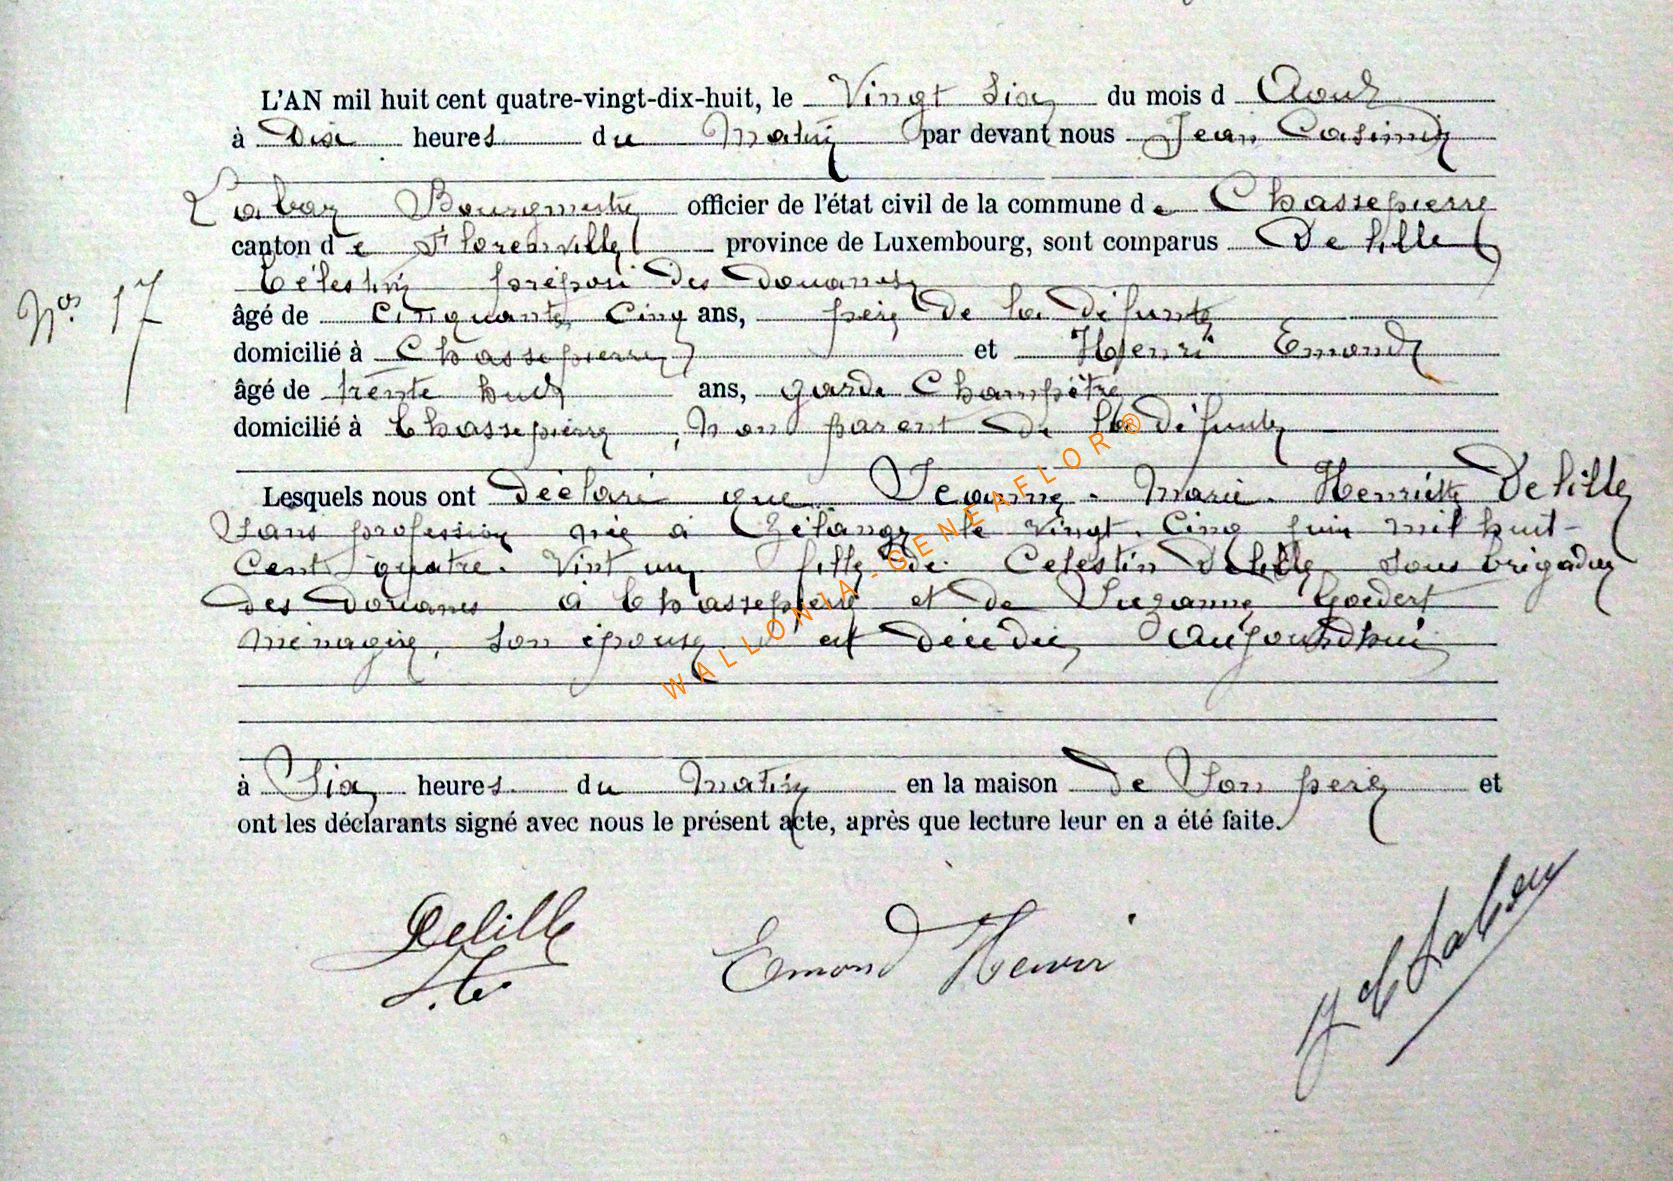 L'AN mil huit cent quatre-vingt-dix-huit, le Vingt Six du mois d Aout
à Dix heures du Matin par devant nous Jean Casimir
Labar Bourgmestre officier de l'état civil de la commune de Chassepierre
canton de Florenville province de Luxembourg, sont comparus Delille
Célestin préposé des douanes
Nos 17
âgé de Cinquante Cinq ans, père de la défunte
domicilié à Chassepierre et Henri Emond
âgé de trente huit ans, garde Champêtre
domicilié à Chassepierre, Non parent de la défunte
Lesquels nous ont déclaré que Jeanne Marie Henriette Delille
Sans profession née à le vingt Cinq juin mil huit
Cent quatre Vint un fille de Celestin Delille Sous brigadier
des Douanes à Chassepierre et de Suzanne Goedert
Ménagère, Son épouse est décédée aujourdhui
à Six heures du Matin en la maison de Son père et
ont les déclarants signé avec nous le présent acte, après que lecture leur en a été faite.
Delille
Emond Henri
WALLONIA-GENEAFLOR®